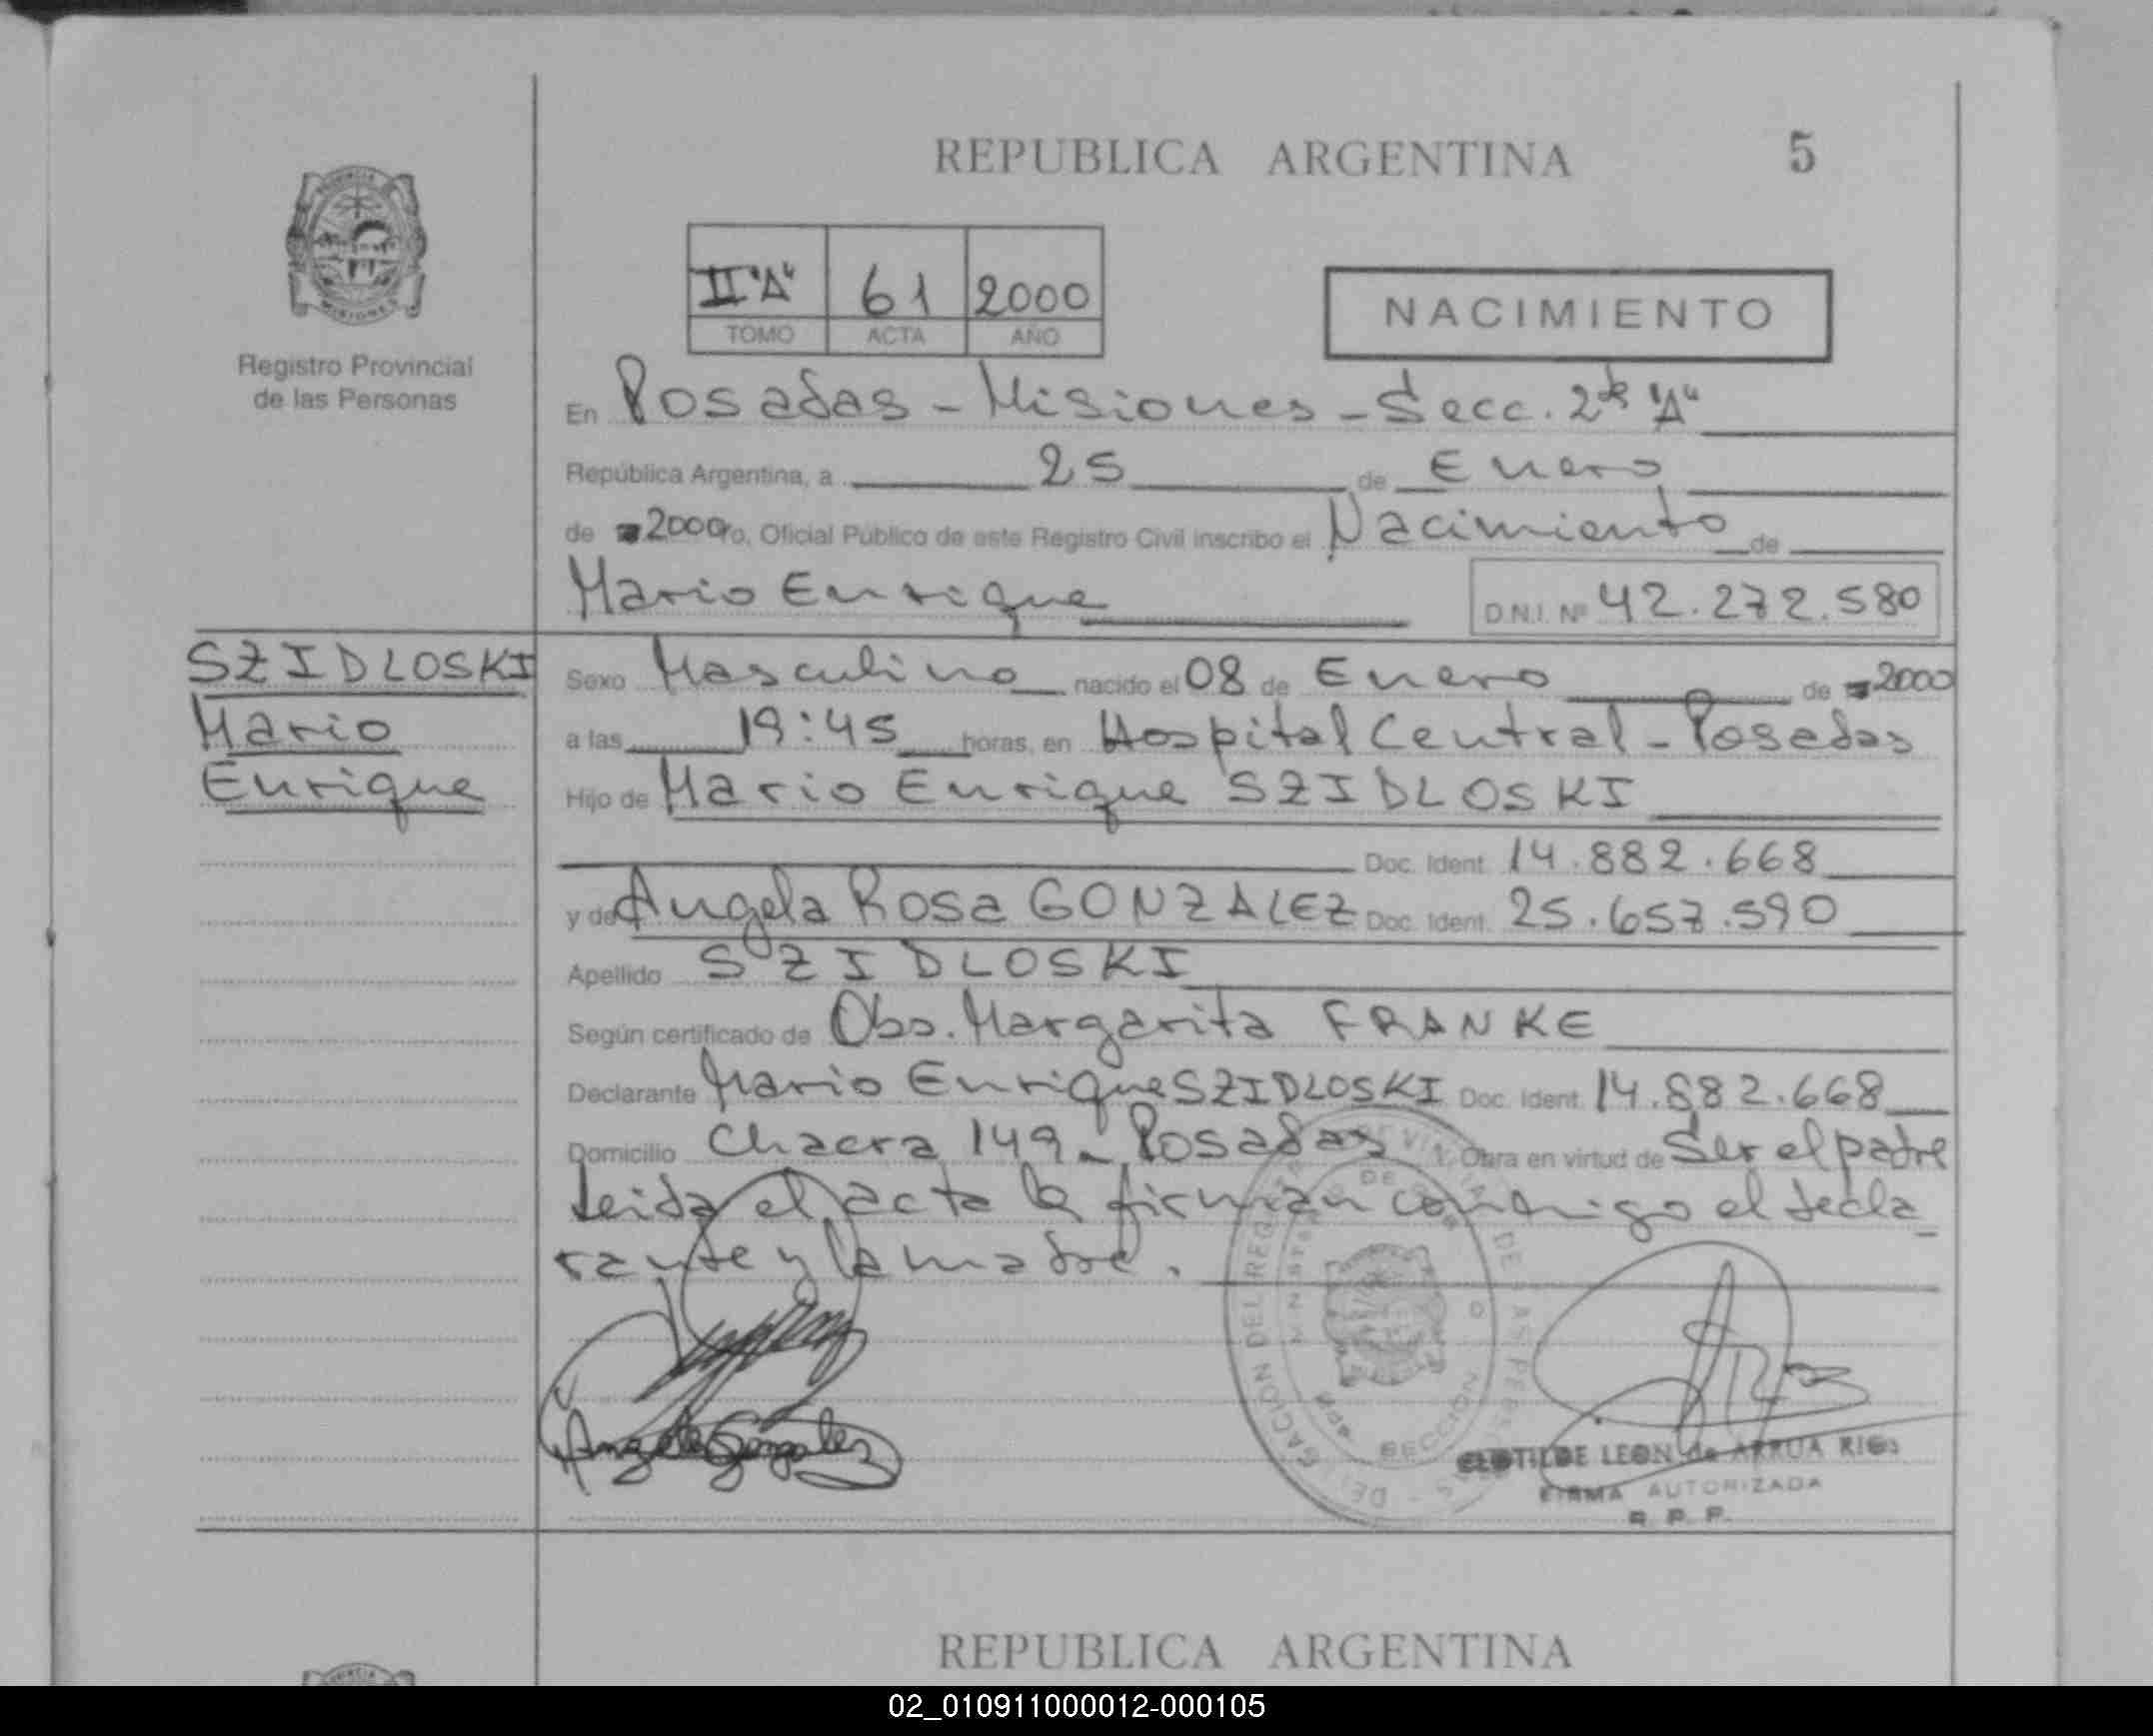 REPUBLICA ARGENTINA 5
PROVINCIA
MISIONES
Registro Provincial
de las Personas
II "A" 61 2000
TOMO ACTA AÑO
NACIMIENTO
En Posadas - Misiones - Secc. 2da "A"
República Argentina, a 25 de Enero
de 2000 Yo, Oficial Público de este Registro Civil inscribo el Nacimiento de
Mario Enrique D.N.I. Nº 42.272.580
SZIDLOSKI
Mario
Enrique
Sexo Masculino nacido el 08 de Enero de 2000
a las 19:45 horas, en Hospital Central - Posadas
Hijo de Mario Enrique SZIDLOSKI
Doc. Ident. 14.882.668
y de Angela Rosa GONZALEZ Doc. Ident. 25.657.590
Apellido SZIDLOSKI
Según certificado de Obs. Margarita FRANKE
Declarante Mario Enrique SZIDLOSKI Doc. Ident. 14.882.668
Domicilio Chacra 149 - Posadas Obra en virtud de Ser el padre
Leida el acta la firman conmigo el decla_
rante y la madre.
Angela Gonzalez
CLOTILDE LEON de ARRUA RIOS
FIRMA AUTORIZADA
R. P. P.
REPUBLICA ARGENTINA
02_010911000012-000105